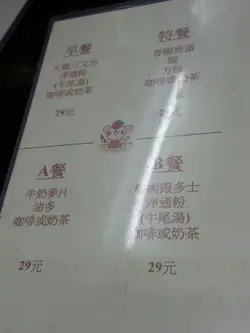 早餐
火腿三文治
淨通粉
(牛尾湯)
咖啡或奶茶
29元
特餐
香腸煎蛋
方包
咖啡或奶茶
29元
A餐
牛奶麥片
油多
咖啡或奶茶
29元
B餐
肉跟多士
淨通粉
(牛尾湯)
咖啡或奶茶
29元